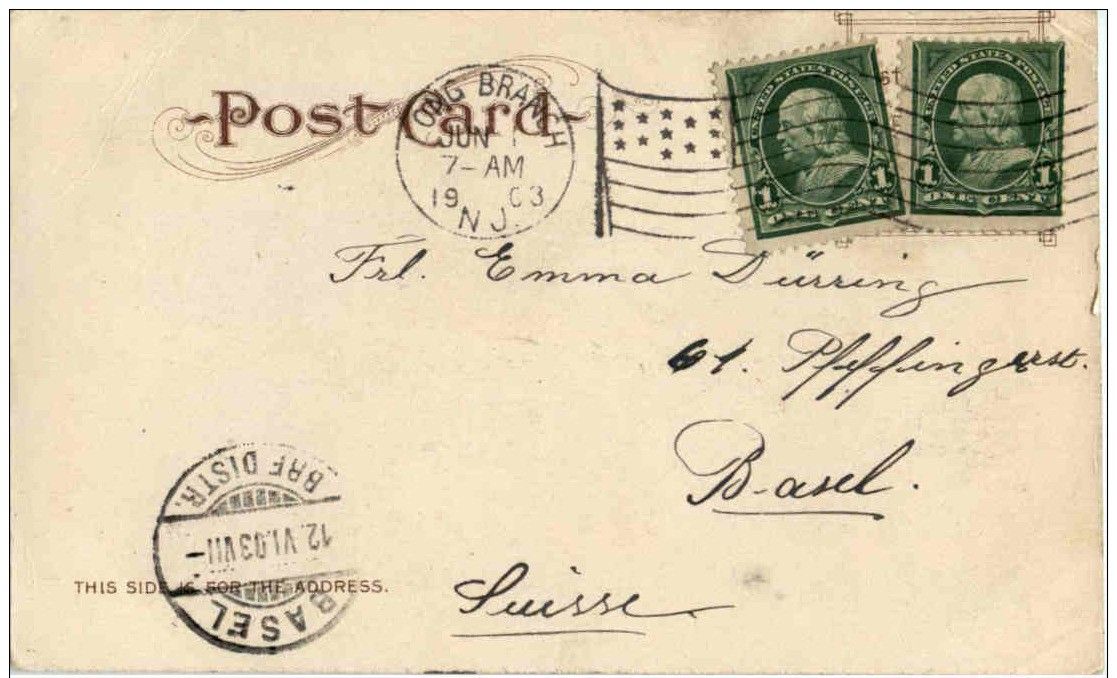 Post Card
LONG BRANCH
JUN 1
7-AM
19 03
N.J.
UNITED STATES POSTAGE
1 ONE CENT 1
UNITED STATES POSTAGE
1 ONE CENT 1
Frl. Emma Dürring
61. Pfeffingerst.
Basel.
Suisse.
BRF DISTR.
12.VI.03 VII-
BASEL
THIS SIDE IS FOR THE ADDRESS.